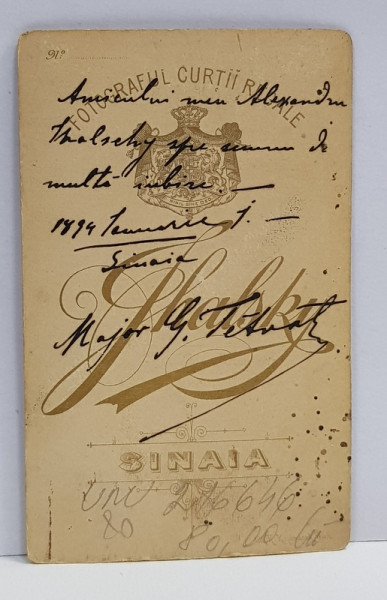 No
FOTOGRAFUL CURTII REGALE
Amicului meu Alexandru
Ihalschy spre semn de
multă iubire. —
1894 Ianuarie 1. —
Sinaia
Ihalsky
Major G.
SINAIA
216646
80 80,00 lei